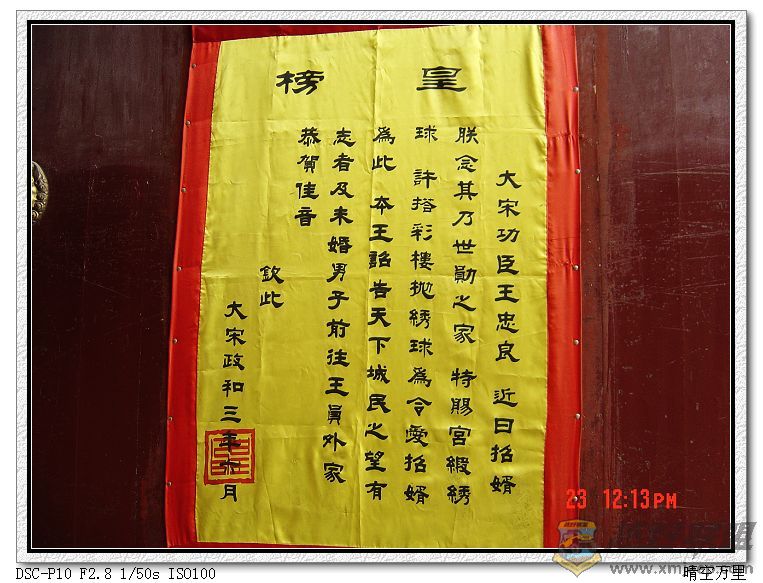 皇榜
大宋功臣王忠良 近日招婿
朕念其乃世勛之家 特賜宮緞綉
球 許搭彩樓拋綉球為令愛招婿
為此 本王詔告天下城民之望有
志者及未婚男子前往王員外家
恭賀佳音
欽此
大宋政和三年六月
23 12:13PM
DSC-P10 F2.8 1/50s ISO100
晴空万里